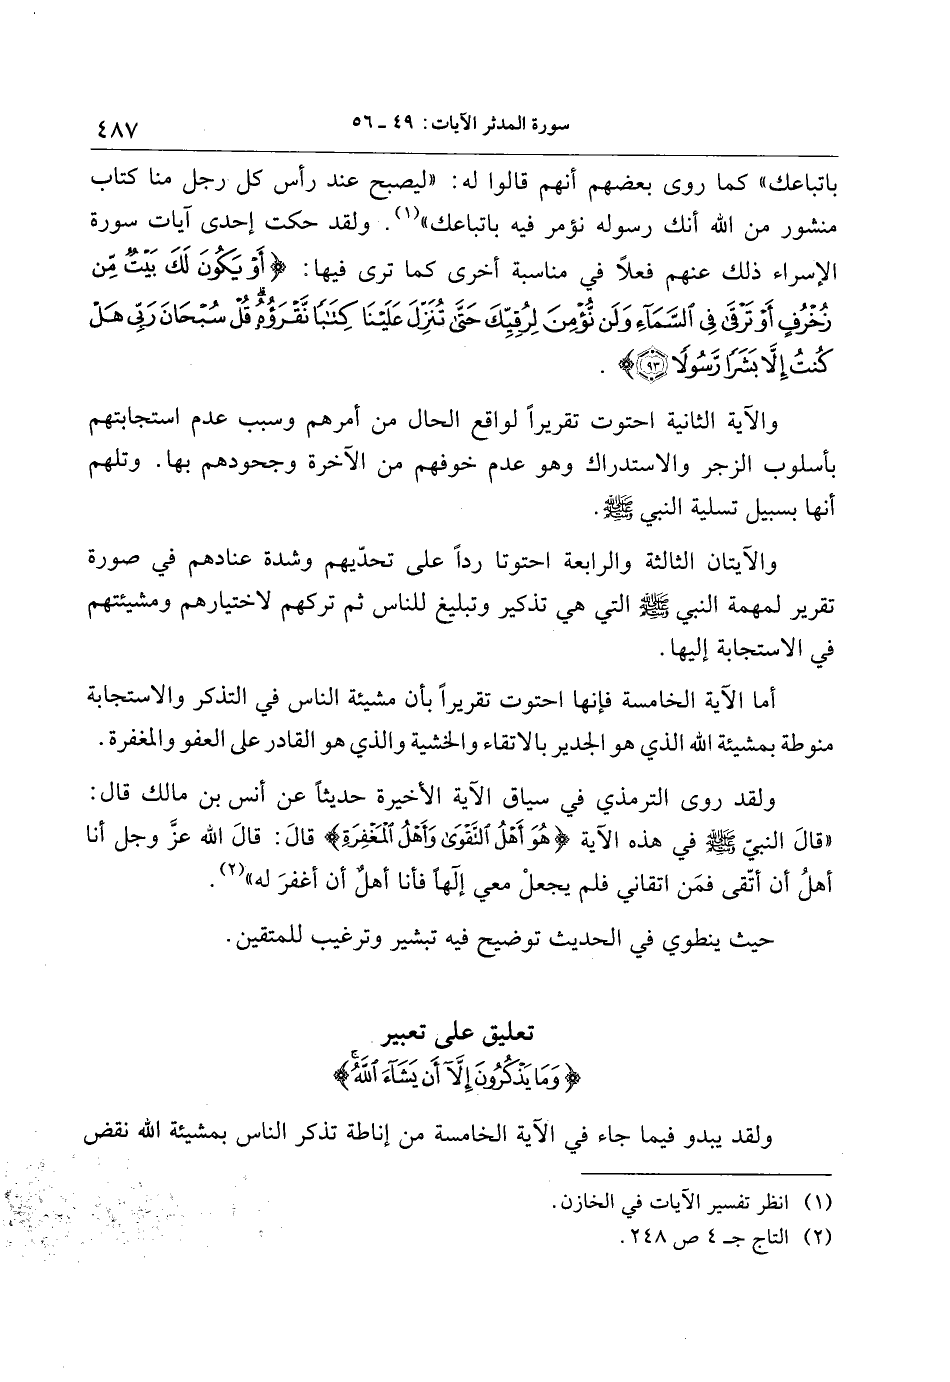 سورة المدثر الآيات: ٤٩ ـ ٥٦
٤٨٧
باتباعك» كما روى بعضهم أنهم قالوا له: «ليصبح عند رأس كل رجل منا كتاب
منشور من الله أنك رسوله نؤمر فيه باتباعك»(١). ولقد حكت إحدى آيات سورة
الإسراء ذلك عنهم فعلاً في مناسبة أخرى كما ترى فيها: ﴿أَوْ يَكُونَ لَكَ بَيْتٌ مِّن
زُخْرُفٍ أَوْ تَرْقَىٰ فِي ٱلسَّمَآءِ وَلَن نُّؤْمِنَ لِرُقِيِّكَ حَتَّىٰ تُنَزِّلَ عَلَيْنَا كِتَٰبًا نَّقْرَؤُهُۥۗ قُلْ سُبْحَانَ رَبِّي هَلْ
كُنتُ إِلَّا بَشَرًا رَّسُولًا ﴿٩٣﴾﴾ .
والآية الثانية احتوت تقريراً لواقع الحال من أمرهم وسبب عدم استجابتهم
بأسلوب الزجر والاستدراك وهو عدم خوفهم من الآخرة وجحودهم بها. وتلهم
أنها بسبيل تسلية النبي ﷺ.
والآيتان الثالثة والرابعة احتوتا رداً على تحدّيهم وشدة عنادهم في صورة
تقرير لمهمة النبي ﷺ التي هي تذكير وتبليغ للناس ثم تركهم لاختيارهم ومشيئتهم
في الاستجابة إليها.
أما الآية الخامسة فإنها احتوت تقريراً بأن مشيئة الناس في التذكر والاستجابة
منوطة بمشيئة الله الذي هو الجدير بالاتقاء والخشية والذي هو القادر على العفو والمغفرة.
ولقد روى الترمذي في سياق الآية الأخيرة حديثاً عن أنس بن مالك قال:
«قالَ النبيّ ﷺ في هذه الآية ﴿هُوَ أَهْلُ ٱلتَّقْوَىٰ وَأَهْلُ ٱلْمَغْفِرَةِ﴾ قالَ: قالَ الله عزَّ وجل أنا
أهلُ أن أتّقى فمَن اتقاني فلم يجعلْ معي إلٰهاً فأنا أهلٌ أن أغفرَ له»(٢).
حيث ينطوي في الحديث توضيح فيه تبشير وترغيب للمتقين.
تعليق على تعبير
﴿وَمَا يَذْكُرُونَ إِلَّآ أَن يَشَآءَ ٱللَّهُۚ﴾
ولقد يبدو فيما جاء في الآية الخامسة من إناطة تذكر الناس بمشيئة الله نقض
(١) انظر تفسير الآيات في الخازن.
(٢) التاج جـ ٤ ص ٢٤٨.